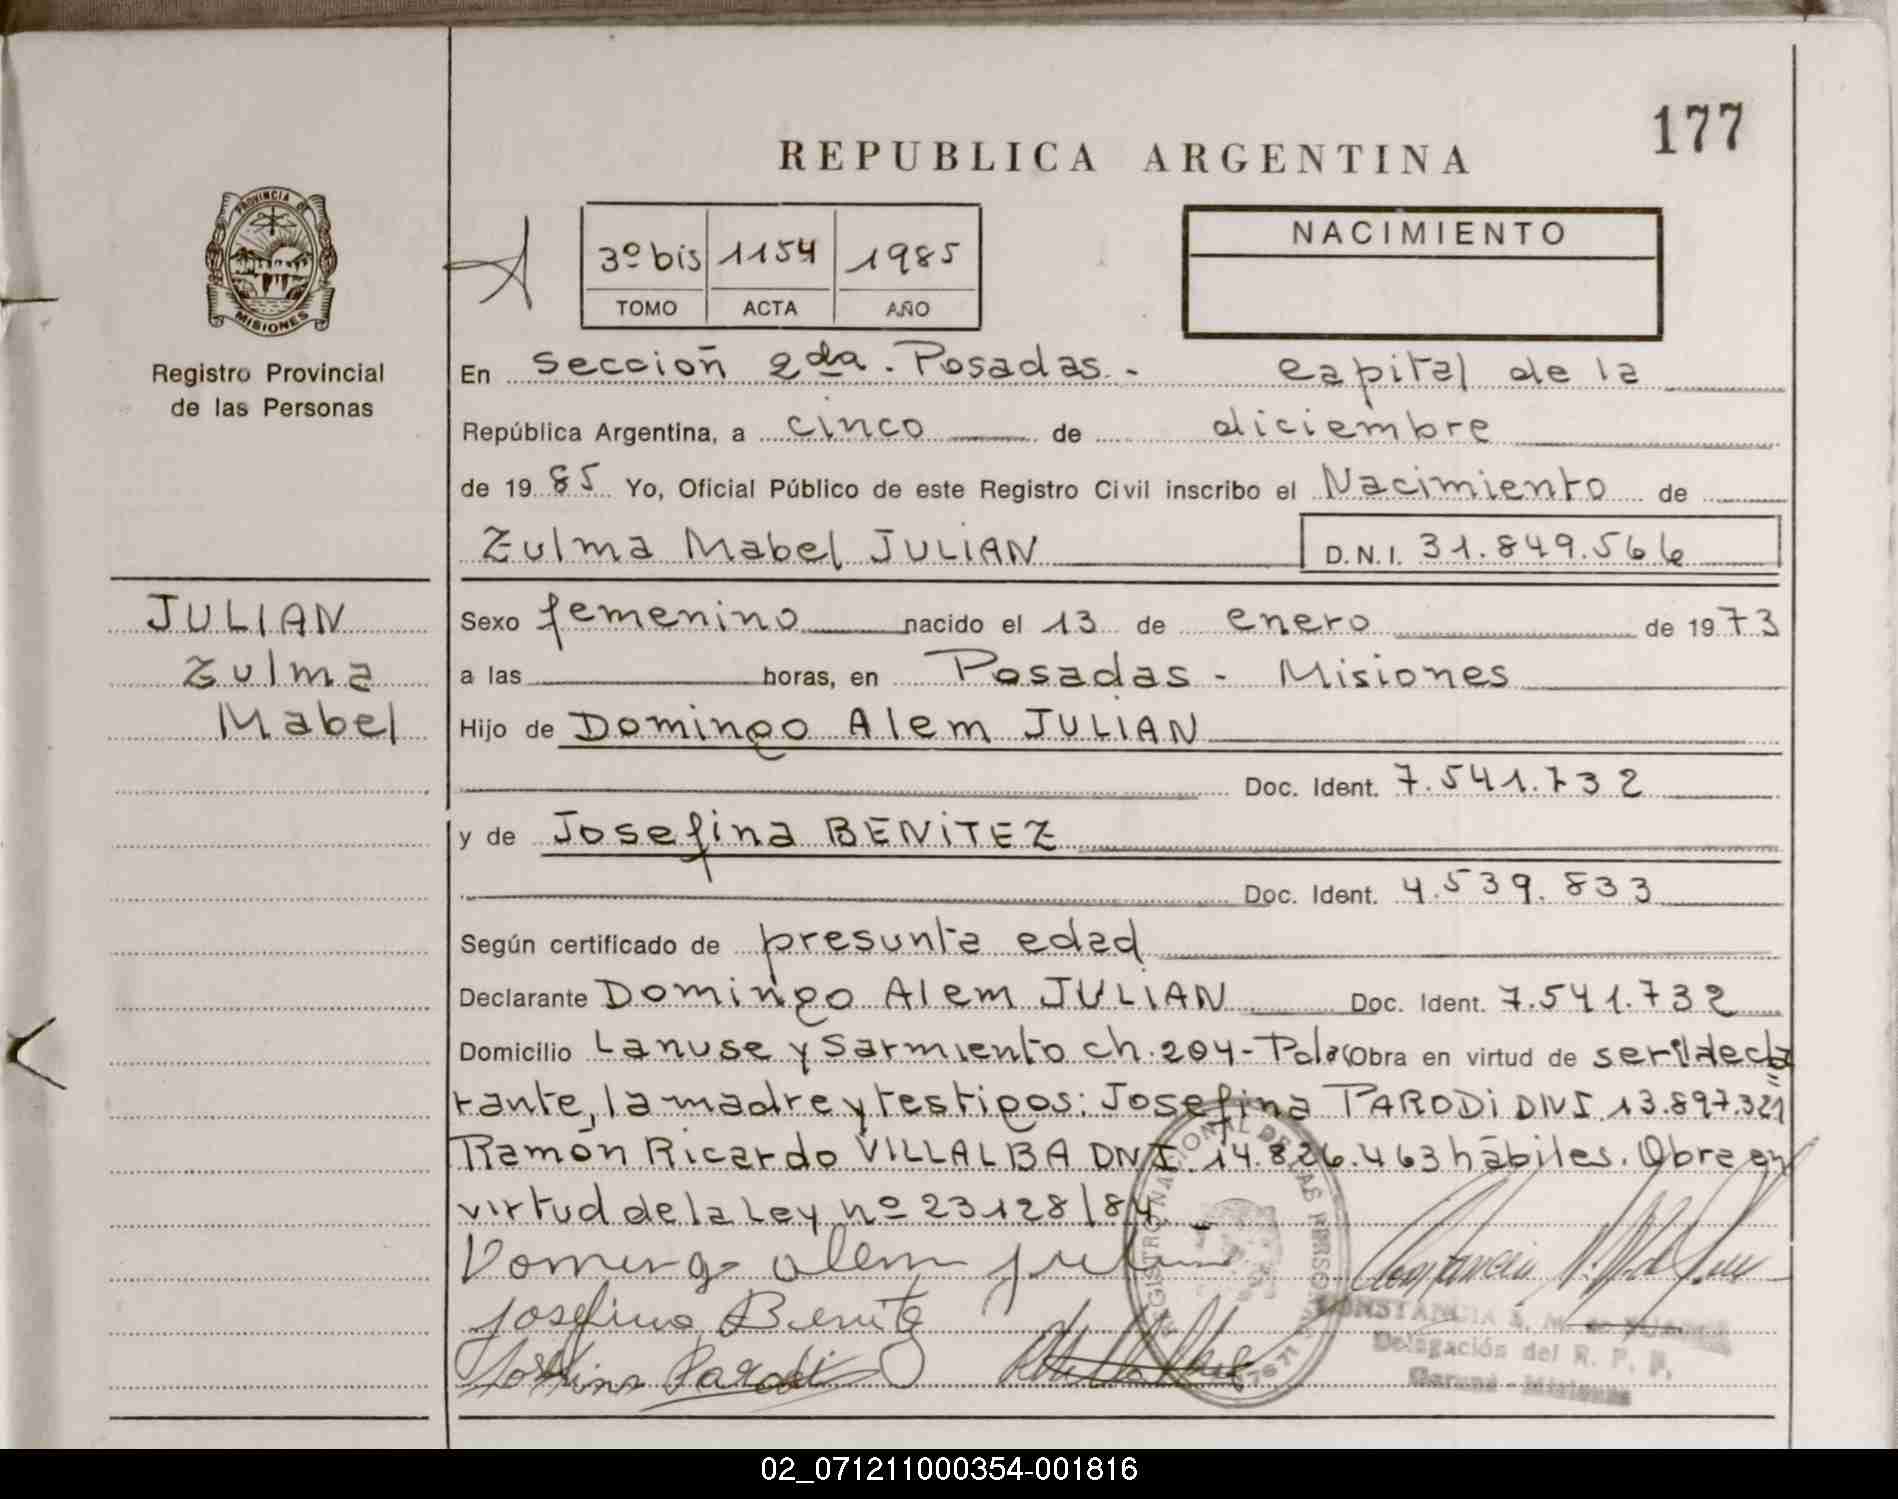 177
REPUBLICA ARGENTINA
PROVINCIA DE
MISIONES
Registro Provincial
de las Personas
3º bis 1154 1985
TOMO ACTA AÑO
NACIMIENTO
En sección 2da. Posadas. - capital de la
República Argentina, a cinco de diciembre
de 1985 Yo, Oficial Público de este Registro Civil inscribo el Nacimiento de
Zulma Mabel JULIAN D.N.I. 31.849.566
JULIAN
Zulma
Mabel
Sexo femenino nacido el 13 de enero de 1973
a las horas, en Posadas - Misiones
Hijo de Domingo Alem JULIAN
Doc. Ident. 7.541.732
y de Josefina BENITEZ
Doc. Ident. 4.539.833
Según certificado de presunta edad
Declarante Domingo Alem JULIAN Doc. Ident. 7.541.732
Domicilio Lanuse y Sarmiento ch. 204- Obra en virtud de ser el decla
rante, la madre y testigos: Josefina PARODI DNI 13.897.321
Ramón Ricardo VILLALBA DNI. 14.826.463 hábiles. Obra en
virtud de la Ley nº 23128/84 -
Domingo alem julian
Josefina Benite
Josefina Parodi
REGISTRO NACIONAL DE LAS PERSONAS
CONSTANCIA
Delegación del R. P. P.
Misiones
02_071211000354-001816